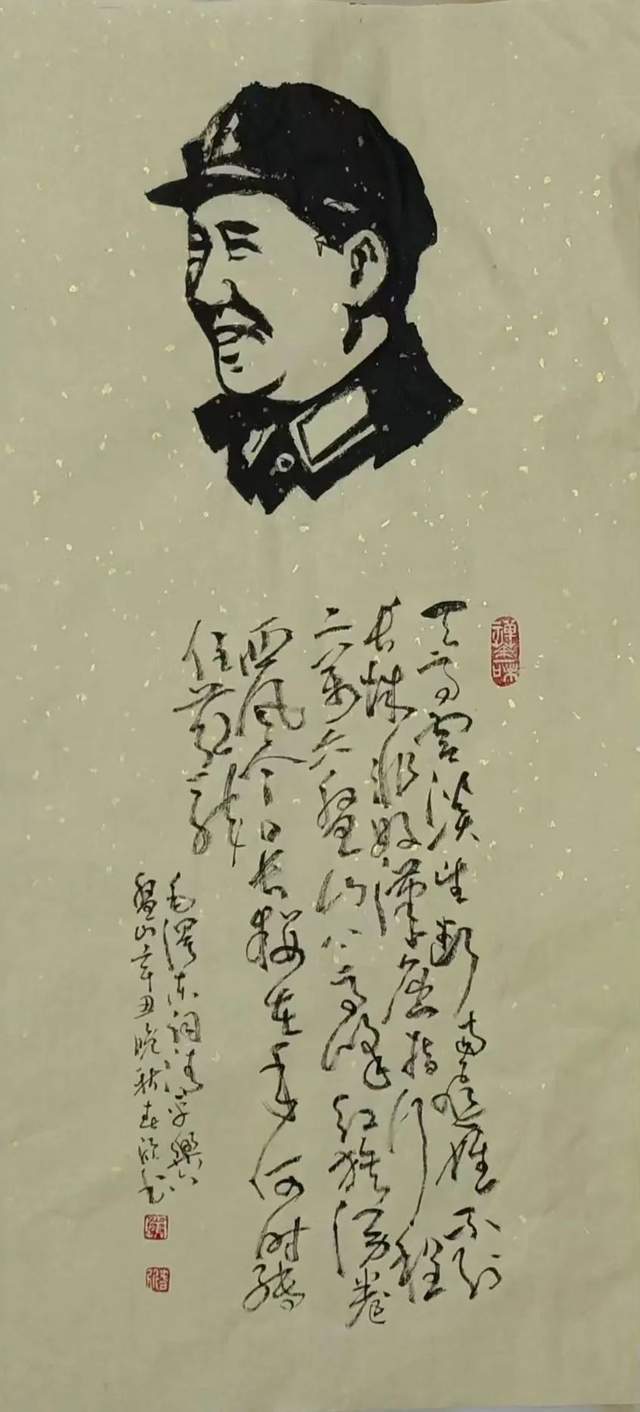 天高雲淡望斷南飛雁不到
長城非好漢屈指行程
二萬六盤山上高峰紅旗漫卷
西風今日長纓在手何時縛
住蒼龍
毛澤東詞清平樂六
盤山辛丑晚秋